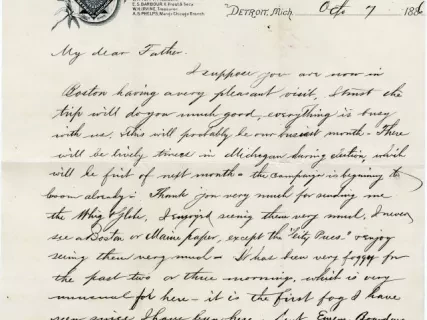 E. S. BARBOUR
W. H. IRVINE, Treasurer
A. S. PHELPS, Mang'r Chicago Branch
DETROIT, Mich. Oct. 7 188
My dear Father.
I suppose you are now in
Boston having a very pleasant visit. I trust the
trip will do you much good, everything is busy
with us. this will probably be our busiest month - There
will be lively times in Michigan during election, which
will be first of next month - the campaign is beginning to
boom already: Thank you very much for sending me
the I enjoyed seeing them very much, I never
see a Boston or Maine paper, except the "City Press" & enjoy
seeing them very much - It has been very foggy for
the past two or three morning, which is very
unusual for here - it is the first fog I have
seen since I have been here.